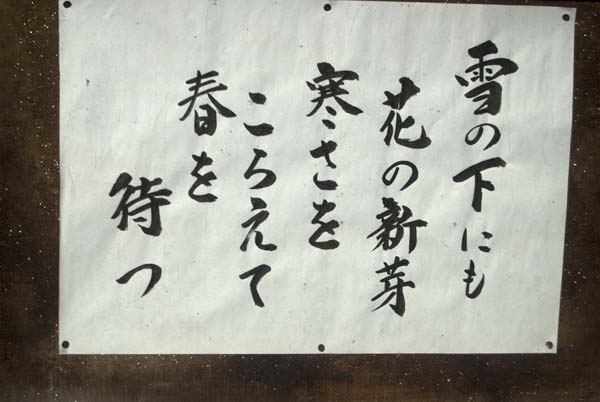 雪の下にも
花の新芽
寒さを
こらえて
春を
待つ